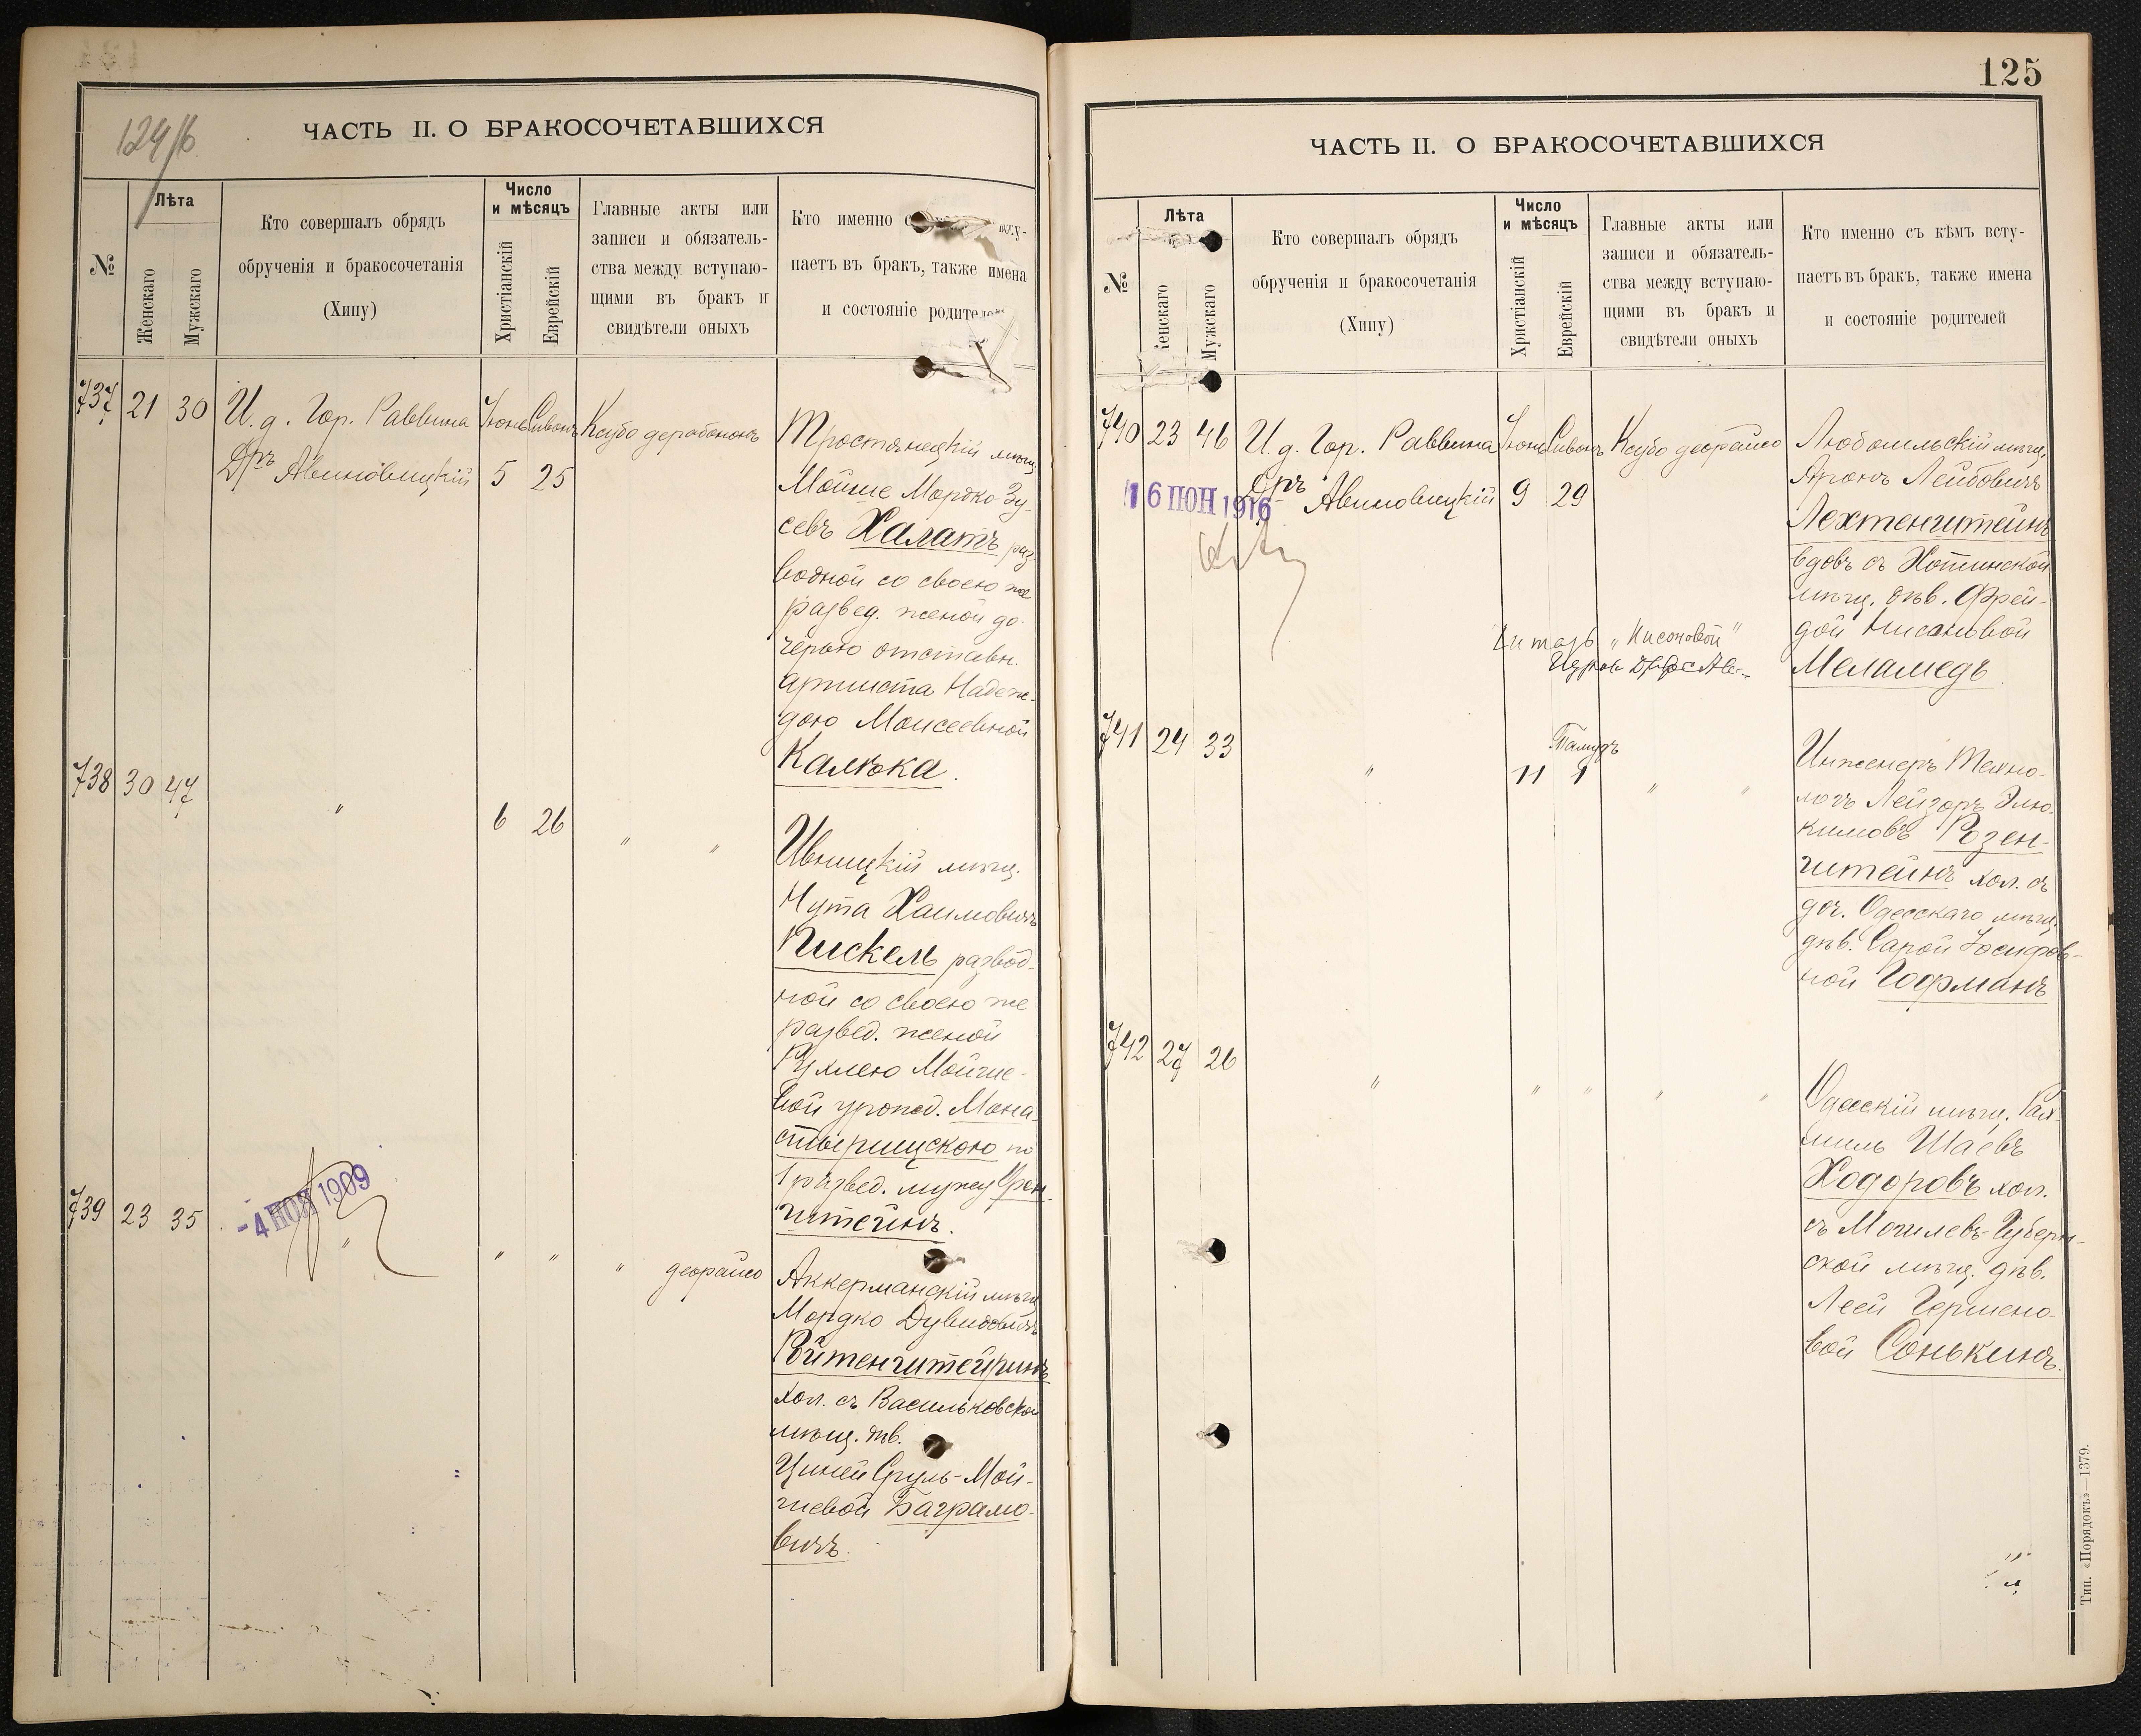 124/б
ЧАСТЬ II. О БРАКОСОЧЕТАВШИХСЯ
№
Лѣта
Женскаго
Мужскаго
Кто совершалъ обрядъ
обрученія и бракосочетанія
(Хипу)
Число
и мѣсяцъ
Христіанскій
Еврейскій
Главные акты или
записи и обязатель-
ства между вступаю-
щими въ бракъ и
свидѣтели оныхъ
Кто именно
паетъ въ бракъ, также имена
и состояніе
737
21
30
И. д. Гор. Раввина
Дръ Авиновицкій
Іюнь
5
Сивонъ
25
Ксубо дерабононъ
Тростянецкій мѣщ.
Мойше Мордко-Зу-
севъ Халатъ раз-
водной со своею же
развед. женой до-
черью отставн.
артиста Надеж-
дою Моисеевной
Калѣка.
738
30
47
"
6
26
"
"
Ивницкій мѣщ.
Нута Хаимовичъ
Пискель развод-
ной со своею же
развед. женой
Рухлею Мойше-
вой урожд. Мона-
стырищскою по
1 развед. мужу
штейнъ.
739
23
35
-4 НОЯ 1909
"
"
"
"
деорайсо
Аккерманскій мѣщ.
Мордко Дувидовичъ
Ройтенштейринъ
хол. съ Васильковской
мѣщ. дѣв.
Циней Сруль-Мой-
шевой Баграмо-
вичъ.
125
ЧАСТЬ II. О БРАКОСОЧЕТАВШИХСЯ
№
Лѣта
Мужскаго
Кто совершалъ обрядъ
обрученія и бракосочетанія
(Хипу)
Число
и мѣсяцъ
Христіанскій
Еврейскій
Главные акты или
записи и обязатель-
ства между вступаю-
щими въ бракъ и
свидѣтели оныхъ
Кто именно съ кѣмъ всту-
паетъ въ бракъ, также имена
и состояніе родителей
740
23
46
И. д. Гор. Раввина
Дръ Авиновицкій
16 ІЮН 1916
Іюнь
9
Сивонъ
29
Ксубо деорайсо
Любомльскій мѣщ.
Аронъ Лейбовичъ
Лехтенштейнъ
вдовъ съ Хотинской
мѣщ. дѣв. Фрей-
дой Нисановой
Меламедъ
Читать „Нисоновой"
741
24
33
"
11
Тамудъ
1
"
"
Инженеръ Техно-
логъ Лейзоръ Элю-
кимовъ Розен-
штейнъ хол. съ
доч. Одесскаго мѣщ.
дѣв. Сарой Іосифов-
ной Гофманъ
742
27
26
"
"
"
"
"
Одесскій мѣщ. Рах-
миль Шаевъ
Ходоровъ хол.
съ Могилевъ-Губерн-
ской мѣщ. дѣв.
Леей Гершено-
вой Сонькинъ.
Тип. «Порядокъ»—1379.